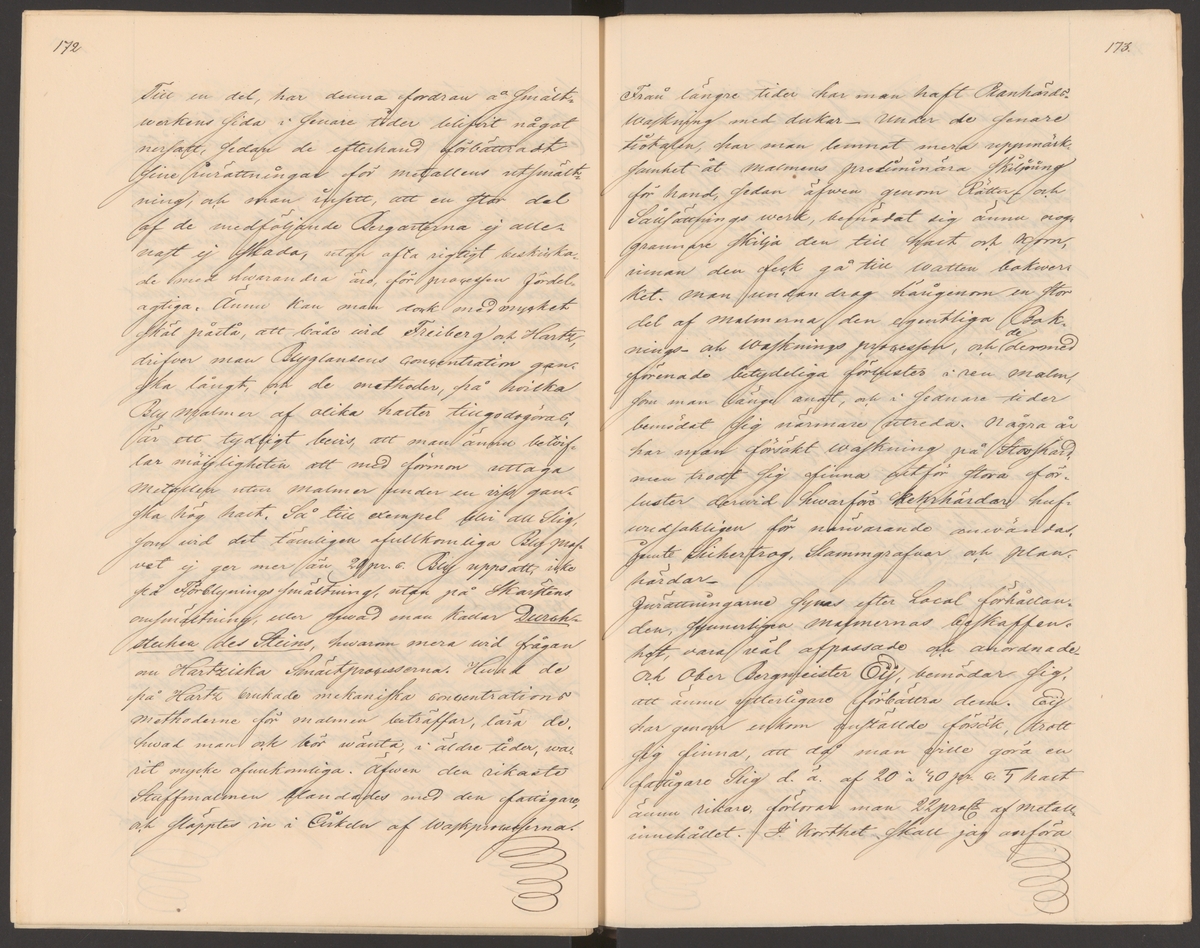 172
Till en del, har denna fordran å smält-
werkens sida i senare tider blifvit något
nersatt, sedan de efterhand förbättradt
sine inrättningar för metallens utsmält-
ning, och man insett, att en stor del
af de medföljande Bergarterna ej alle-
nast ej skada, utan ofta rigtigt beskicka-
de med hwarandra äro för processen fördel-
agtiga. Ännu kan man dock med mycket
skäl påstå, att både vid Freiberg och Hartz,
drifver man Blyglansens concentration gan-
ska långt, och de methoder, på hvilka
Bly malmer af olika halter tillgodogöras,
är ett tydligt bevis, att man ännu betvif-
lar möjligheten att med förmon uttaga
metallen utur malmer under en viss gan-
ska hög halt. Så till exempel blir all Slig,
som vid det tämligen ofullkomliga Bly prof-
vet ej ger mer än 20 pr. c. Bly uppsatt, icke
på Förblynings smältning, utan på Skärstens
omsmältning, eller hwad man kallar Durch-
stechen des Steins, hwarom mera vid frågan
om Hartziska Smältprocesserna. Hwad de
på Hartz brukade mekaniska concentrations
methoderne för malmen beträffar, lära de,
hwad man ock bör wänta, i äldre tider, wa-
rit mycke ofullkomliga. Äfwen den rikaste
Stuffmalmen blandades med den fattigare,
och släpptes in i Cirkeln af Waskprocesserna.
173.
Från längre tider har man haft Planhärds-
Waskning med dukar – Under de senare
tiotalen, har man lemnat mera uppmärk-
samhet åt malmens preliminära skiljning
för hand, sedan äfwen genom Rätter- och
Sättsättnings werk, bemödat sig ännu nog-
grannare skilja den till halt och Korn,
innan den feck gå till Watten bokwer-
ket. Man undandrog härigenom en stor
del af malmerna den egentliga Bok-
nings- och Wasknings processen, och de dermed
förenade betydeliga förluster i ren malm,
som man länge anat, och i sednare tider
bemödat sig närmare utreda. Några år
har man försökt Waskning på Stosshärd
men trodt sig finna alltför stora för-
luster dervid hwarföre Kehrhärdar huf-
vudsakligen för närvarande användas,
jämte Sichertrog, Slammgrafvar och plan-
härdar –
Inrättningarne synas efter Local förhållan-
den, synnerligen malmernas beskaffen-
het, vara väl afpassade och anordnade
och Ober Bergmeister Eij, bemödar sig,
att ännu ytterligare förbättra dem. Eij
har genom enkom anställde försök, trott
sig finna, att då man ville göra en
fattigare Slig d. ä. af 20 à 40 pr. c. halt
ännu rikare, förlorar man 22 pr. af metall
innehållet. I korthet skall jag anföra